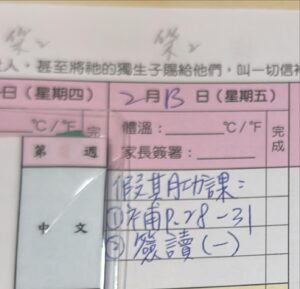 人，甚至將祂的獨生子賜給他們，叫一切信
日（星期四） 2月13日（星期五）
℃/℉ 完 體溫：℃/℉ 完成
第 週 家長簽署：
中文 假期功課：
①補P.28-31
② 簽讀（一）